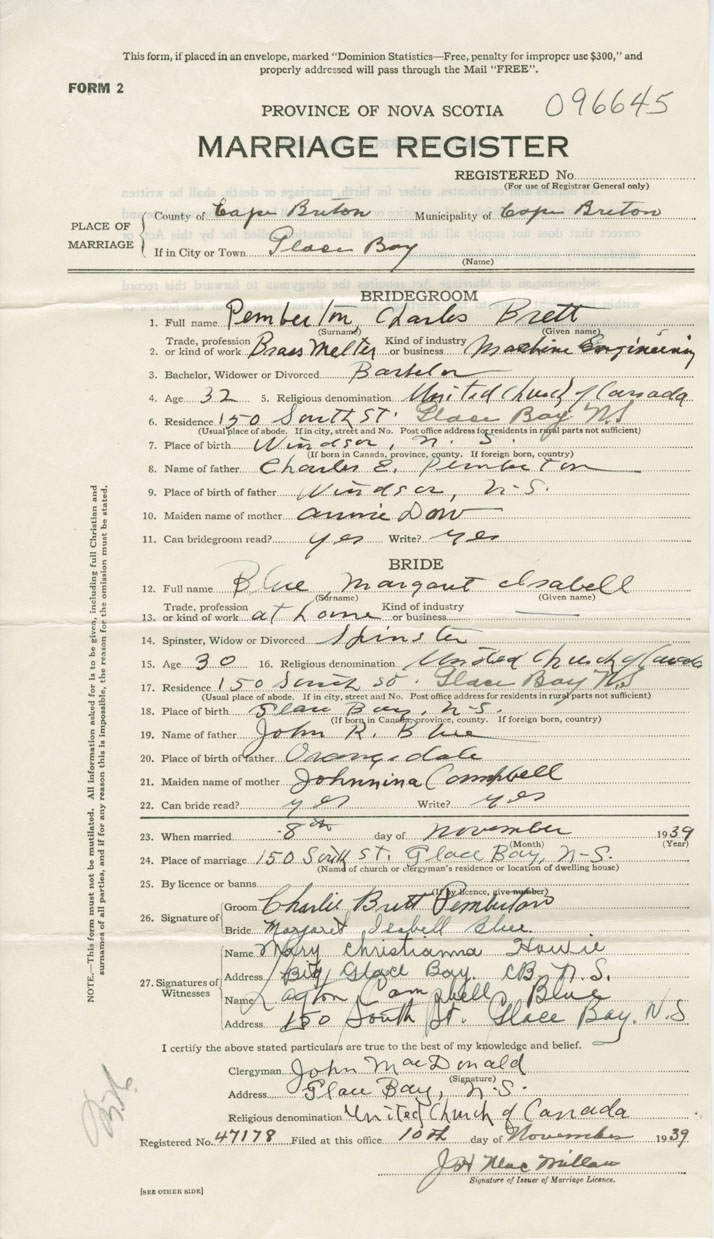 This form, if placed in an envelope, marked "Dominion Statistics—Free, penalty for improper use $300," and
properly addressed will pass through the Mail "FREE".
FORM 2
PROVINCE OF NOVA SCOTIA 096645
MARRIAGE REGISTER
REGISTERED No.
(For use of Registrar General only)
PLACE OF MARRIAGE
County of Cape Breton Municipality of Cape Breton
If in City or Town Glace Bay
(Name)
BRIDEGROOM
1. Full name Pemberton, Charles Brett
(Surname) (Given name)
Trade, profession Kind of industry
2. or kind of work Brass Melter or business Machine Engineering
3. Bachelor, Widower or Divorced Bachelor
4. Age 32 5. Religious denomination United Church of Canada
6. Residence 150 South St. Glace Bay NS
(Usual place of abode. If in city, street and No. Post office address for residents in rural parts not sufficient)
7. Place of birth Windsor, N.S.
(If born in Canada, province, county. If foreign born, country)
8. Name of father Charles E. Pemberton
9. Place of birth of father Windsor, N-S.
10. Maiden name of mother Annie Dow
11. Can bridegroom read? yes Write? yes
BRIDE
12. Full name Blue, Margaut Isabell
(Surname) (Given name)
Trade, profession Kind of industry
13. or kind of work at home or business
14. Spinster, Widow or Divorced Spinster
15. Age 30 16. Religious denomination United Church of Canada
17. Residence 150 South St. Glace Bay NS
(Usual place of abode. If in city, street and No. Post office address for residents in rural parts not sufficient)
18. Place of birth Glace Bay, N-S.
(If born in Canada, province, county. If foreign born, country)
19. Name of father John R. Blue
20. Place of birth of father Orangedale
21. Maiden name of mother Johnnina Campbell
22. Can bride read? yes Write? yes
23. When married 8th day of November 1939
(Month) (Year)
24. Place of marriage 150 South St. Glace Bay, N-S.
(Name of church or clergyman's residence or location of dwelling house)
25. By licence or banns
(If by licence, give number)
26. Signature of
Groom Charlie Brett Pemberton
Bride Margaret Isabell Blue.
27. Signatures of Witnesses
Name Mary Christianna Howie
Address Glace Bay. CB. N.S.
Name Campbell Blue
Address 150 South St. Glace Bay. N.S
I certify the above stated particulars are true to the best of my knowledge and belief.
Clergyman John MacDonald
(Signature)
Address Glace Bay, N-S.
Religious denomination United Church of Canada
Registered No. 47178 Filed at this office 10th day of November 1939
J H MacMillan
Signature of Issuer of Marriage Licence.
[SEE OTHER SIDE]
NOTE.—This form must not be mutilated. All information asked for is to be given, including full Christian and
surnames of all parties, and if for any reason this is impossible, the reason for the omission must be stated.